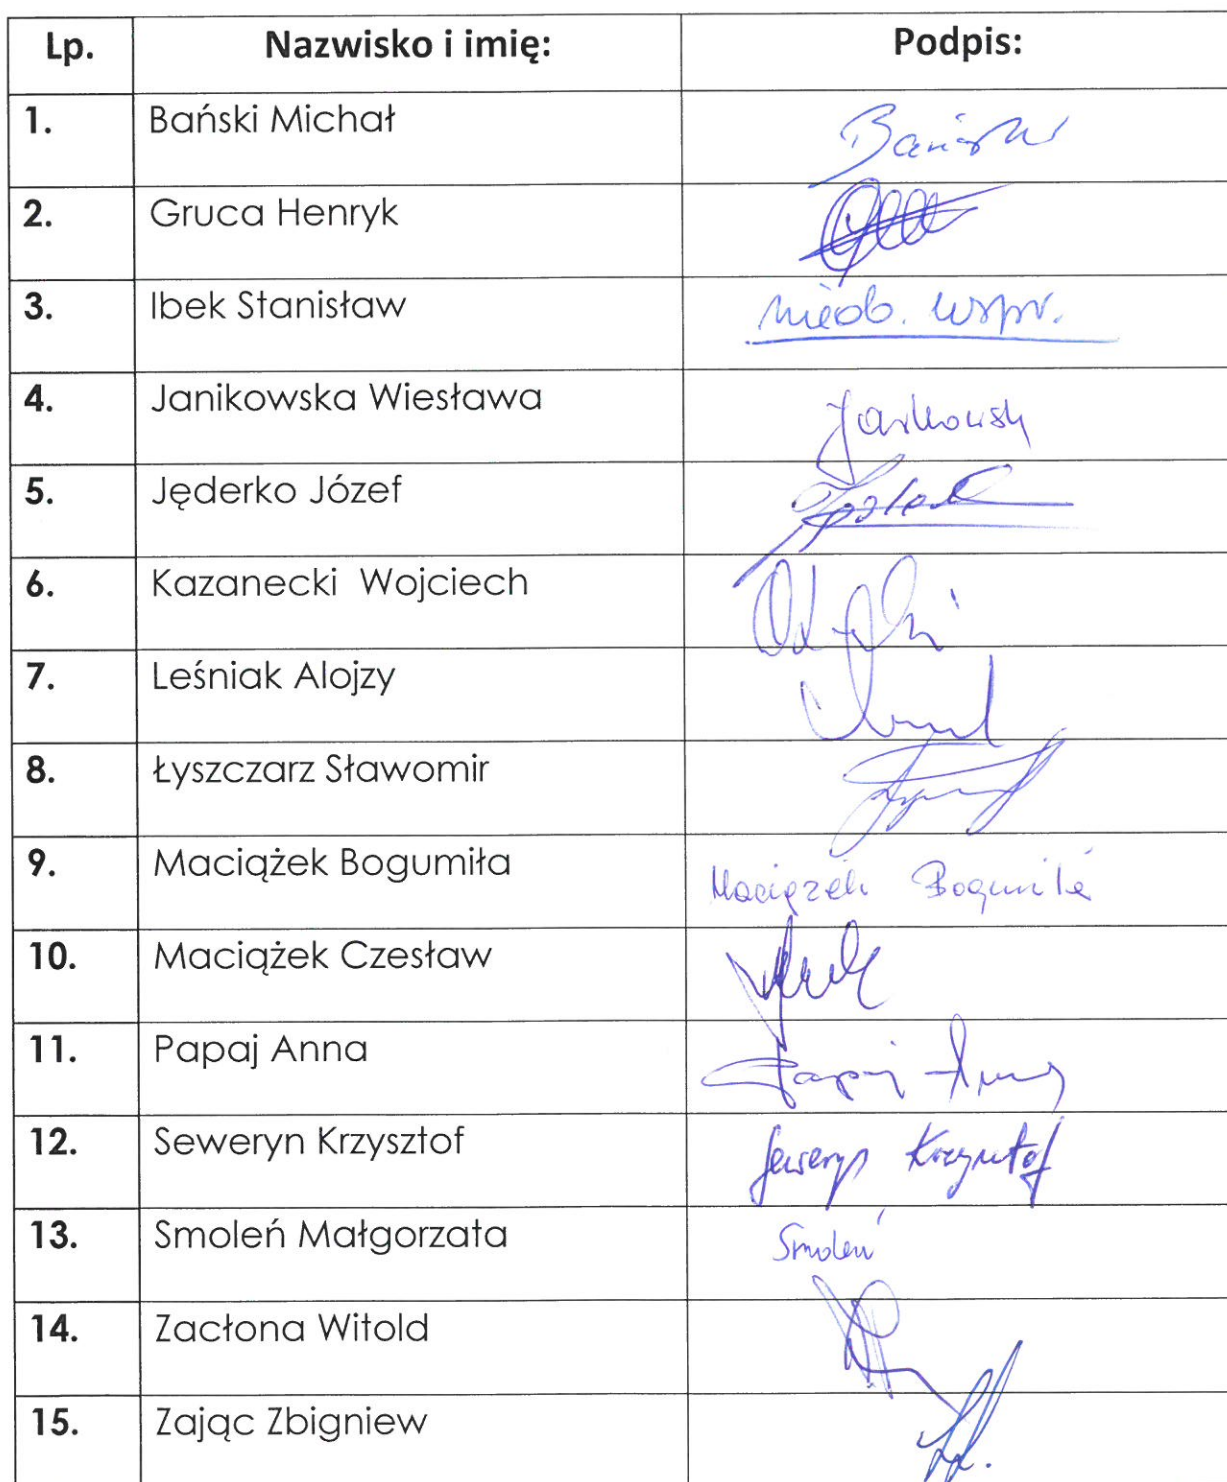 Lp. Nazwisko i imię: Podpis:
1. Bański Michał Bański
2. Gruca Henryk
3. Ibek Stanisław nieob. uspr.
4. Janikowska Wiesława
5. Jęderko Józef
6. Kazanecki Wojciech
7. Leśniak Alojzy
8. Łyszczarz Sławomir
9. Maciążek Bogumiła Maciążek Bogumiła
10. Maciążek Czesław
11. Papaj Anna Papaj Anna
12. Seweryn Krzysztof Seweryn Krzysztof
13. Smoleń Małgorzata Smoleń
14. Zacłona Witold
15. Zając Zbigniew